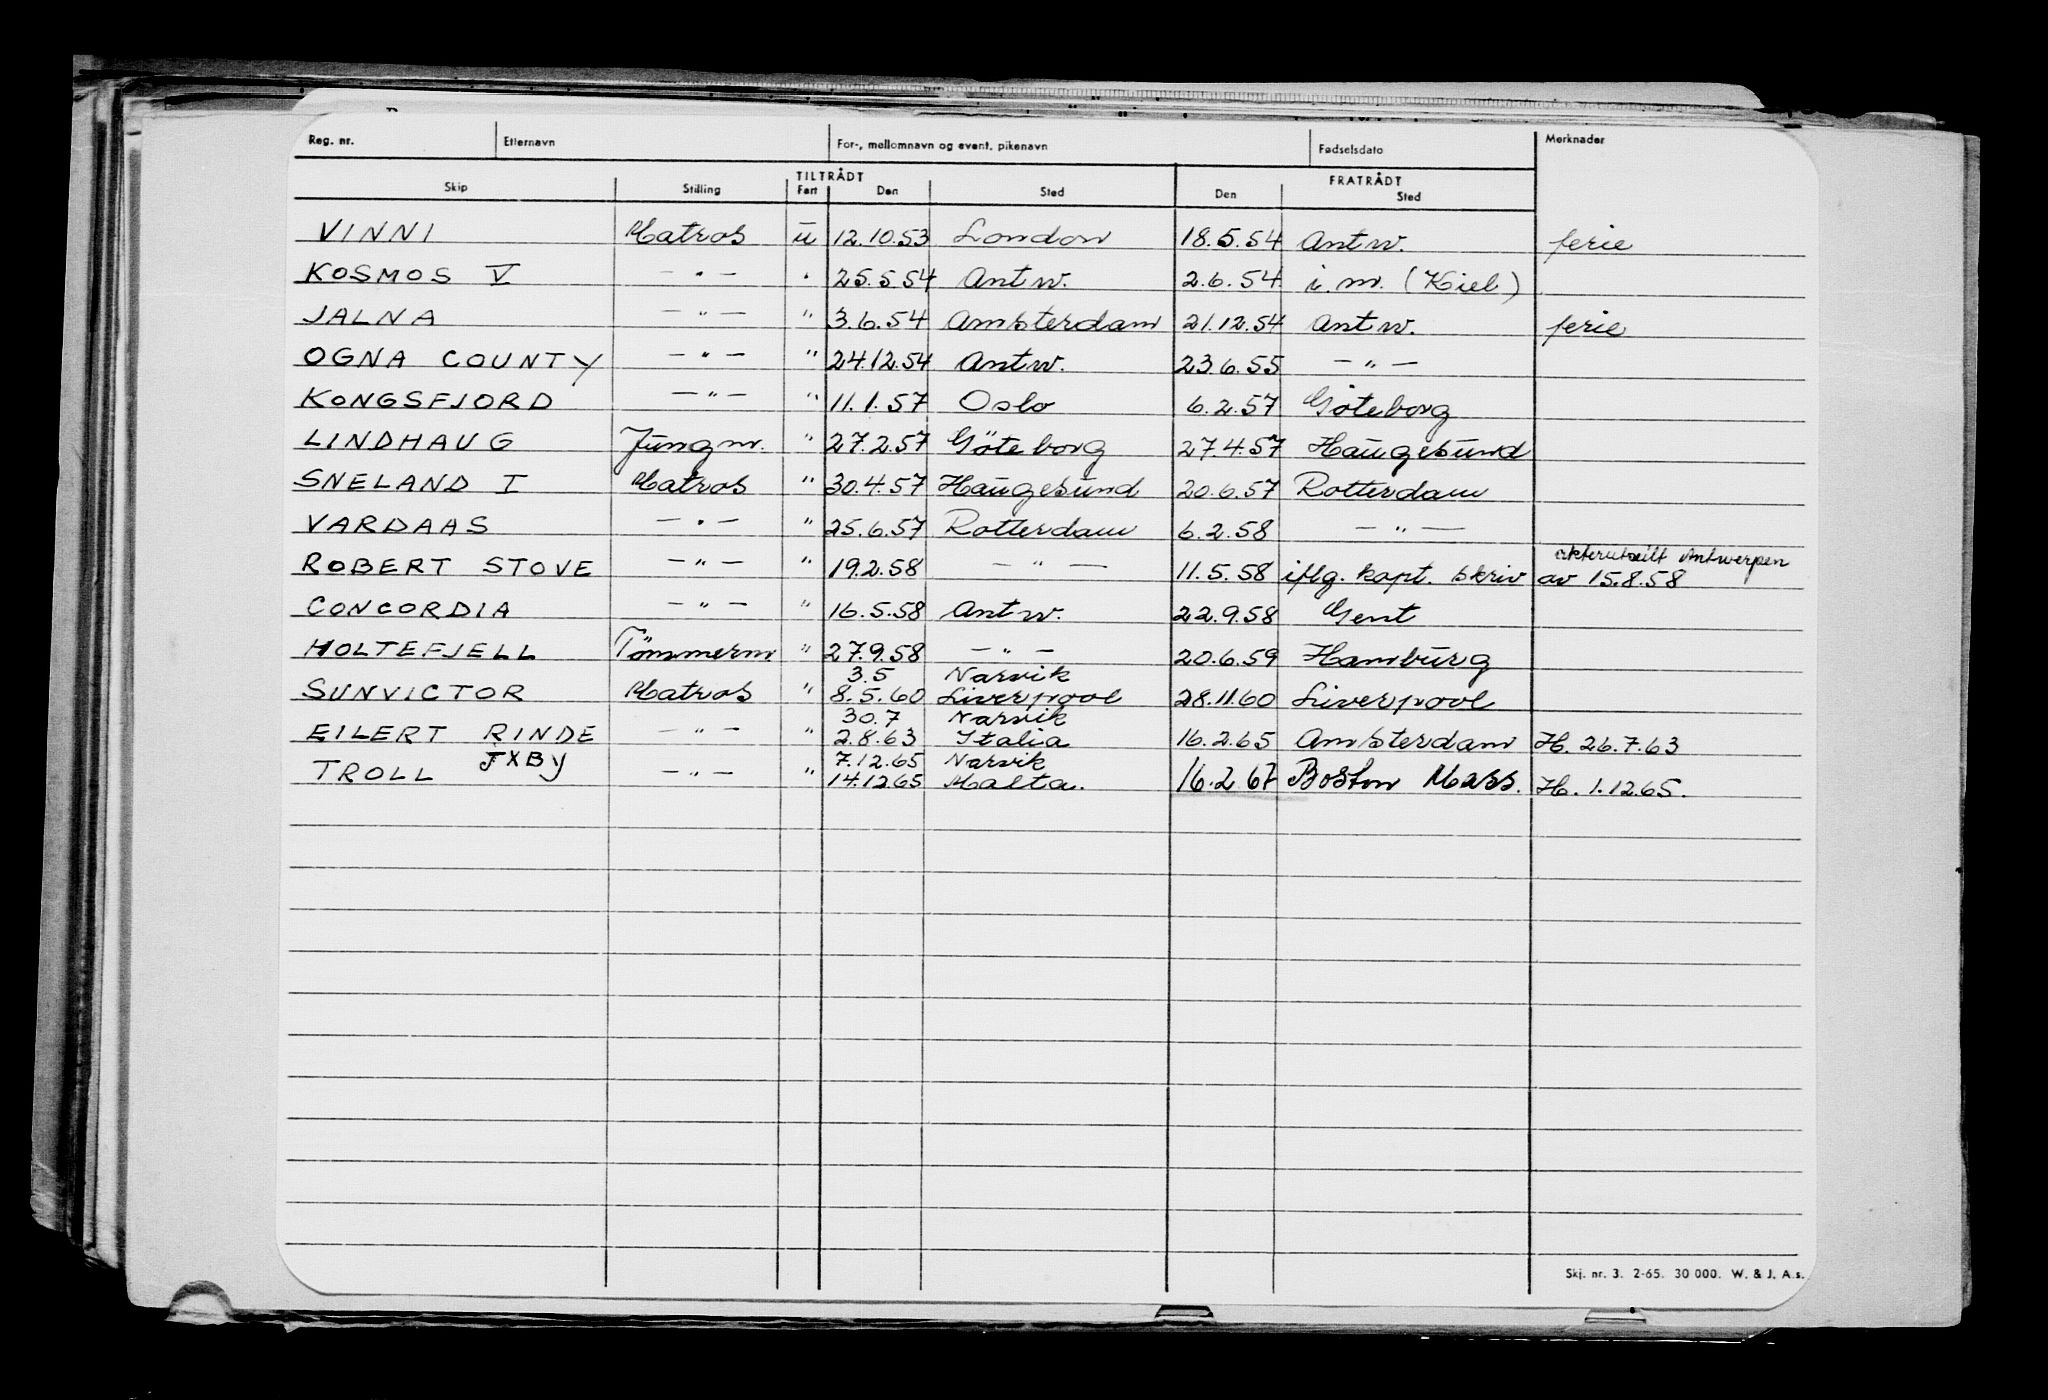 Reg. nr. Etternavn For-, mellomnavn og event. pikenavn Fødselsdato Merknader
TILTRÅDT FRATRÅDT
Skip Stilling Fart Den Sted Den Sted
VINNI Matros u 12.10.53 London 18.5.54 Antw. ferie
KOSMOS V — " — " 25.5.54 Antw. 2.6.54 i.m. (Kiel)
JALNA — " — " 3.6.54 Amsterdam 21.12.54 Antw. ferie
OGNA COUNTY — " — " 24.12.54 Antw. 23.6.55 — " —
KONGSFJORD — " — " 11.1.57 Oslo 6.2.57 Göteborg
LINDHAUG Jungm. " 27.2.57 Göteborg 27.4.57 Haugesund
SNELAND I Matros " 30.4.57 Haugesund 20.6.57 Rotterdam
VARDAAS — " — " 25.6.57 Rotterdam 6.2.58 — " —
akterutseilt Antwerpen
ROBERT STOVE — " — " 19.2.58 — " — 11.5.58 iflg. kapt. skriv av 15.8.58
CONCORDIA — " — " 16.5.58 Antw. 22.9.58 Gent
HOLTEFJELL Tömmerm " 27.9.58 — " — 20.6.59 Hamburg
3.5 Narvik
SUNVICTOR Matros " 8.5.60 Liverpool 28.11.60 Liverpool
30.7 Narvik
EILERT RINDE — " — " 2.8.63 Italia 16.2.65 Amsterdam H. 26.7.63
JXBY 7.12.65 Narvik
TROLL — " — " 14.12.65 Malta. 16.2.67 Boston Mass. H. 1.12.65.
Skj. nr. 3. 2-65. 30 000. W. & J. A.s.